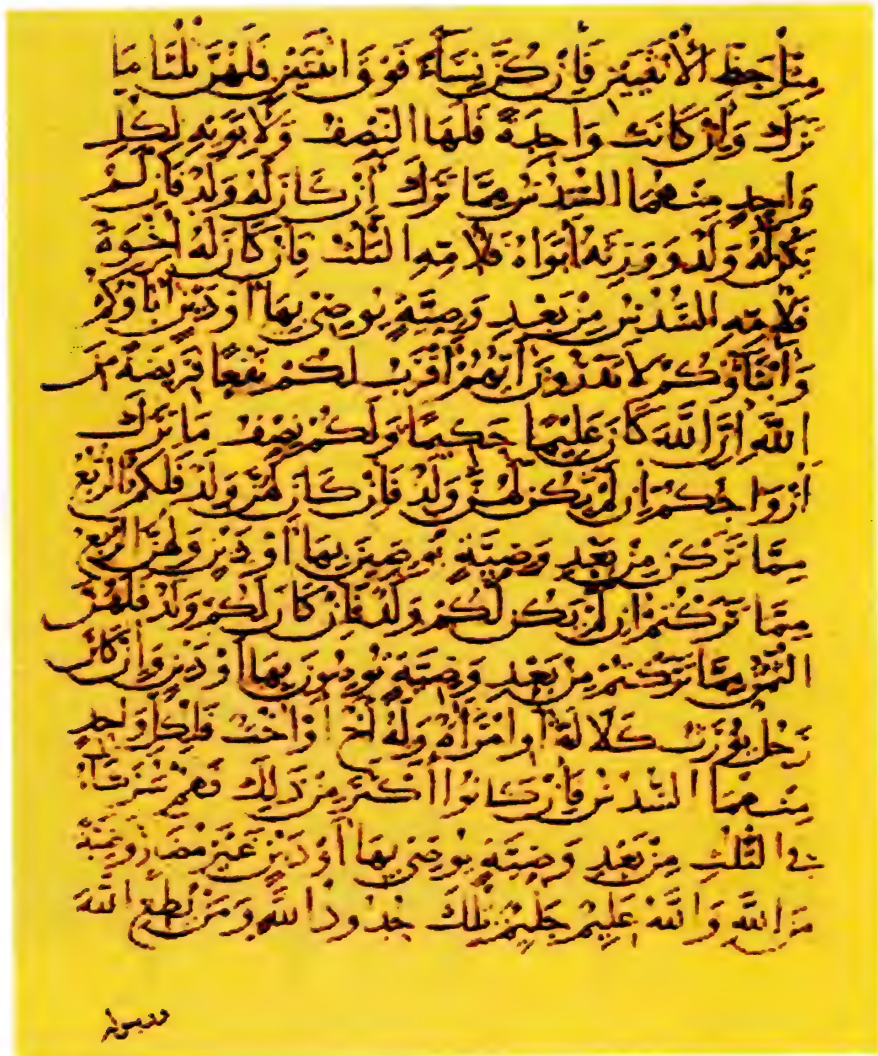 مِثْلُ حَظِّ الْأُنْثَيَيْنِ فَإِنْ كُنَّ نِسَاءً فَوْقَ اثْنَتَيْنِ فَلَهُنَّ ثُلُثَا مَا
تَرَكَ وَإِنْ كَانَتْ وَاحِدَةً فَلَهَا النِّصْفُ وَلِأَبَوَيْهِ لِكُلِّ
وَاحِدٍ مِنْهُمَا السُّدُسُ مِمَّا تَرَكَ إِنْ كَانَ لَهُ وَلَدٌ فَإِنْ لَمْ
يَكُنْ لَهُ وَلَدٌ وَوَرِثَهُ أَبَوَاهُ فَلِأُمِّهِ الثُّلُثُ فَإِنْ كَانَ لَهُ إِخْوَةٌ
فَلِأُمِّهِ السُّدُسُ مِنْ بَعْدِ وَصِيَّةٍ يُوصِي بِهَا أَوْ دَيْنٍ آبَاؤُكُمْ
وَأَبْنَاؤُكُمْ لَا تَدْرُونَ أَيُّهُمْ أَقْرَبُ لَكُمْ نَفْعًا فَرِيضَةً مِنَ
اللَّهِ إِنَّ اللَّهَ كَانَ عَلِيمًا حَكِيمًا وَلَكُمْ نِصْفُ مَا تَرَكَ
أَزْوَاجُكُمْ إِنْ لَمْ يَكُنْ لَهُنَّ وَلَدٌ فَإِنْ كَانَ لَهُنَّ وَلَدٌ فَلَكُمُ الرُّبُعُ
مِمَّا تَرَكْنَ مِنْ بَعْدِ وَصِيَّةٍ يُوصِينَ بِهَا أَوْ دَيْنٍ وَلَهُنَّ الرُّبُعُ
مِمَّا تَرَكْتُمْ إِنْ لَمْ يَكُنْ لَكُمْ وَلَدٌ فَإِنْ كَانَ لَكُمْ وَلَدٌ فَلَهُنَّ
الثُّمُنُ مِمَّا تَرَكْتُمْ مِنْ بَعْدِ وَصِيَّةٍ تُوصُونَ بِهَا أَوْ دَيْنٍ وَإِنْ كَانَ
رَجُلٌ يُورَثُ كَلَالَةً أَوِ امْرَأَةٌ وَلَهُ أَخٌ أَوْ أُخْتٌ فَلِكُلِّ وَاحِدٍ
مِنْهُمَا السُّدُسُ فَإِنْ كَانُوا أَكْثَرَ مِنْ ذَلِكَ فَهُمْ شُرَكَاءُ
فِي الثُّلُثِ مِنْ بَعْدِ وَصِيَّةٍ يُوصَى بِهَا أَوْ دَيْنٍ غَيْرَ مُضَارٍّ وَصِيَّةً
مِنَ اللَّهِ وَاللَّهُ عَلِيمٌ حَلِيمٌ تِلْكَ حُدُودُ اللَّهِ وَمَنْ يُطِعِ اللَّهَ
ورسوله